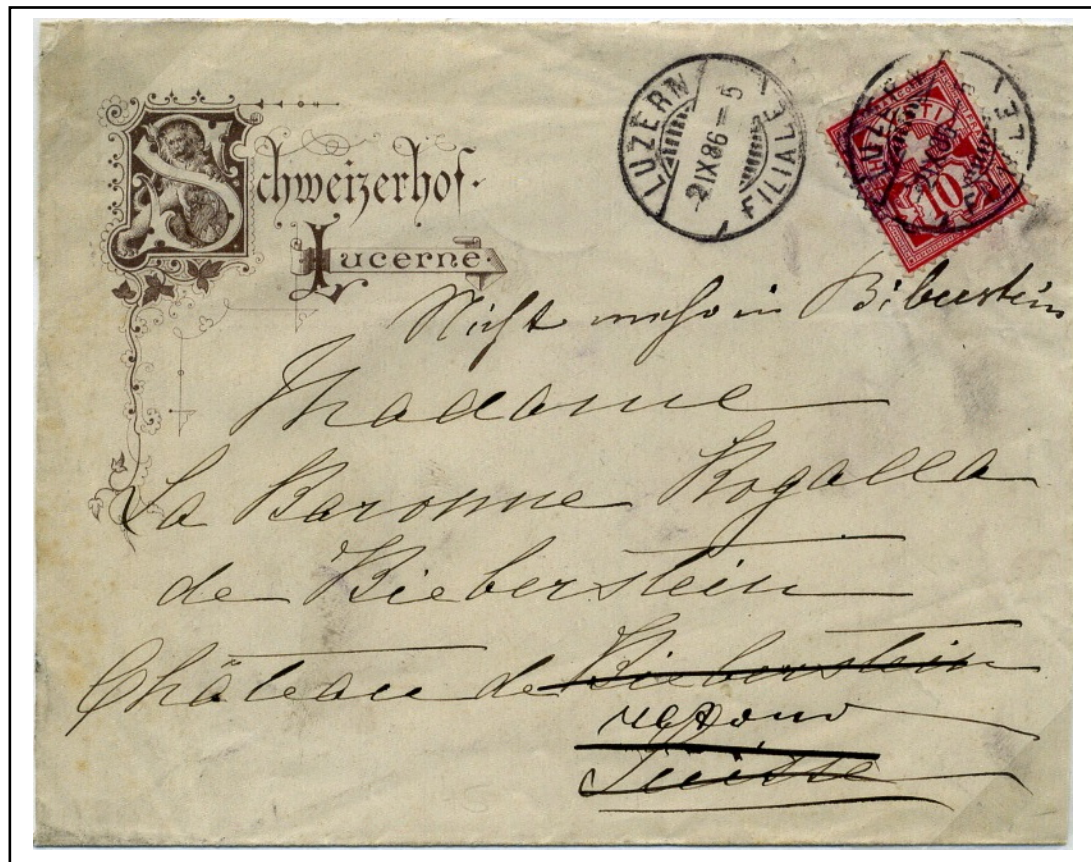 Schweizerhof.
Lucerne.
LUZERN
-2 IX 86 - 5
FILIALE
LUZERN
FILIALE
10
Nicht mehr in Biberstein
Madame
La Baronne Rogalla
de Bieberstein
Château de Bieberstein
retour
Suisse